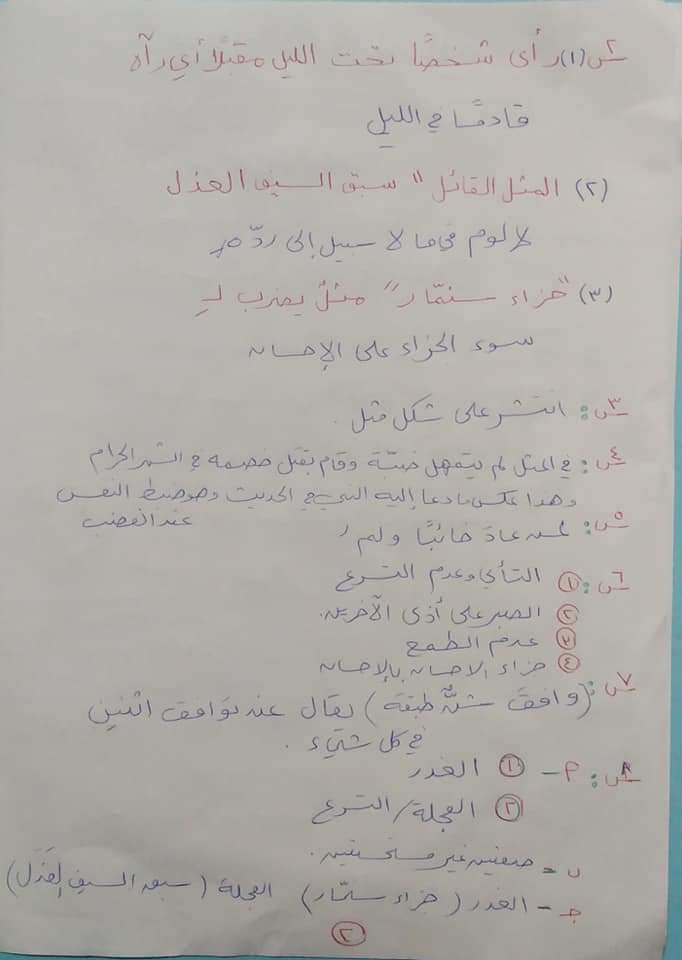 س٢ (١) رأى شخصًا تحت الليل مقبلًا أي رآه
قادمًا في الليل
(٢) المثل القائل " سبق السيف العذل
لا لوم في ما لا سبيل إلى ردّه
(٣) "جزاء سنمّار" مثلٌ يضرب لـِ
سوء الجزاء على الإحسان
س٣: انتشر على شكل مثل.
س٤: في المثل لم يتمهل ضبّة وقام بقتل خصمه في الشهر الحرام
وهذا عكس ما دعا إليه النبي في الحديث وهو ضبط النفس
عند الغضب
س٥: لمن عاد خائبًا ولم
س٦: ① التأني وعدم التسرع
② الصبر على أذى الآخرين.
③ عدم الطمع
④ جزاء الاحسان بالإحسان
س٧: (وافق شنٌّ طبقة) يقال عند توافق اثنين
في كل شيء.
س٨: م- ① الغدر
② العجلة/ التسرع
ب- صفتين غير مستحسنتين.
جـ- الغدر (جزاء سنمّار) العجلة (سبق السيف العَذَل)
٢